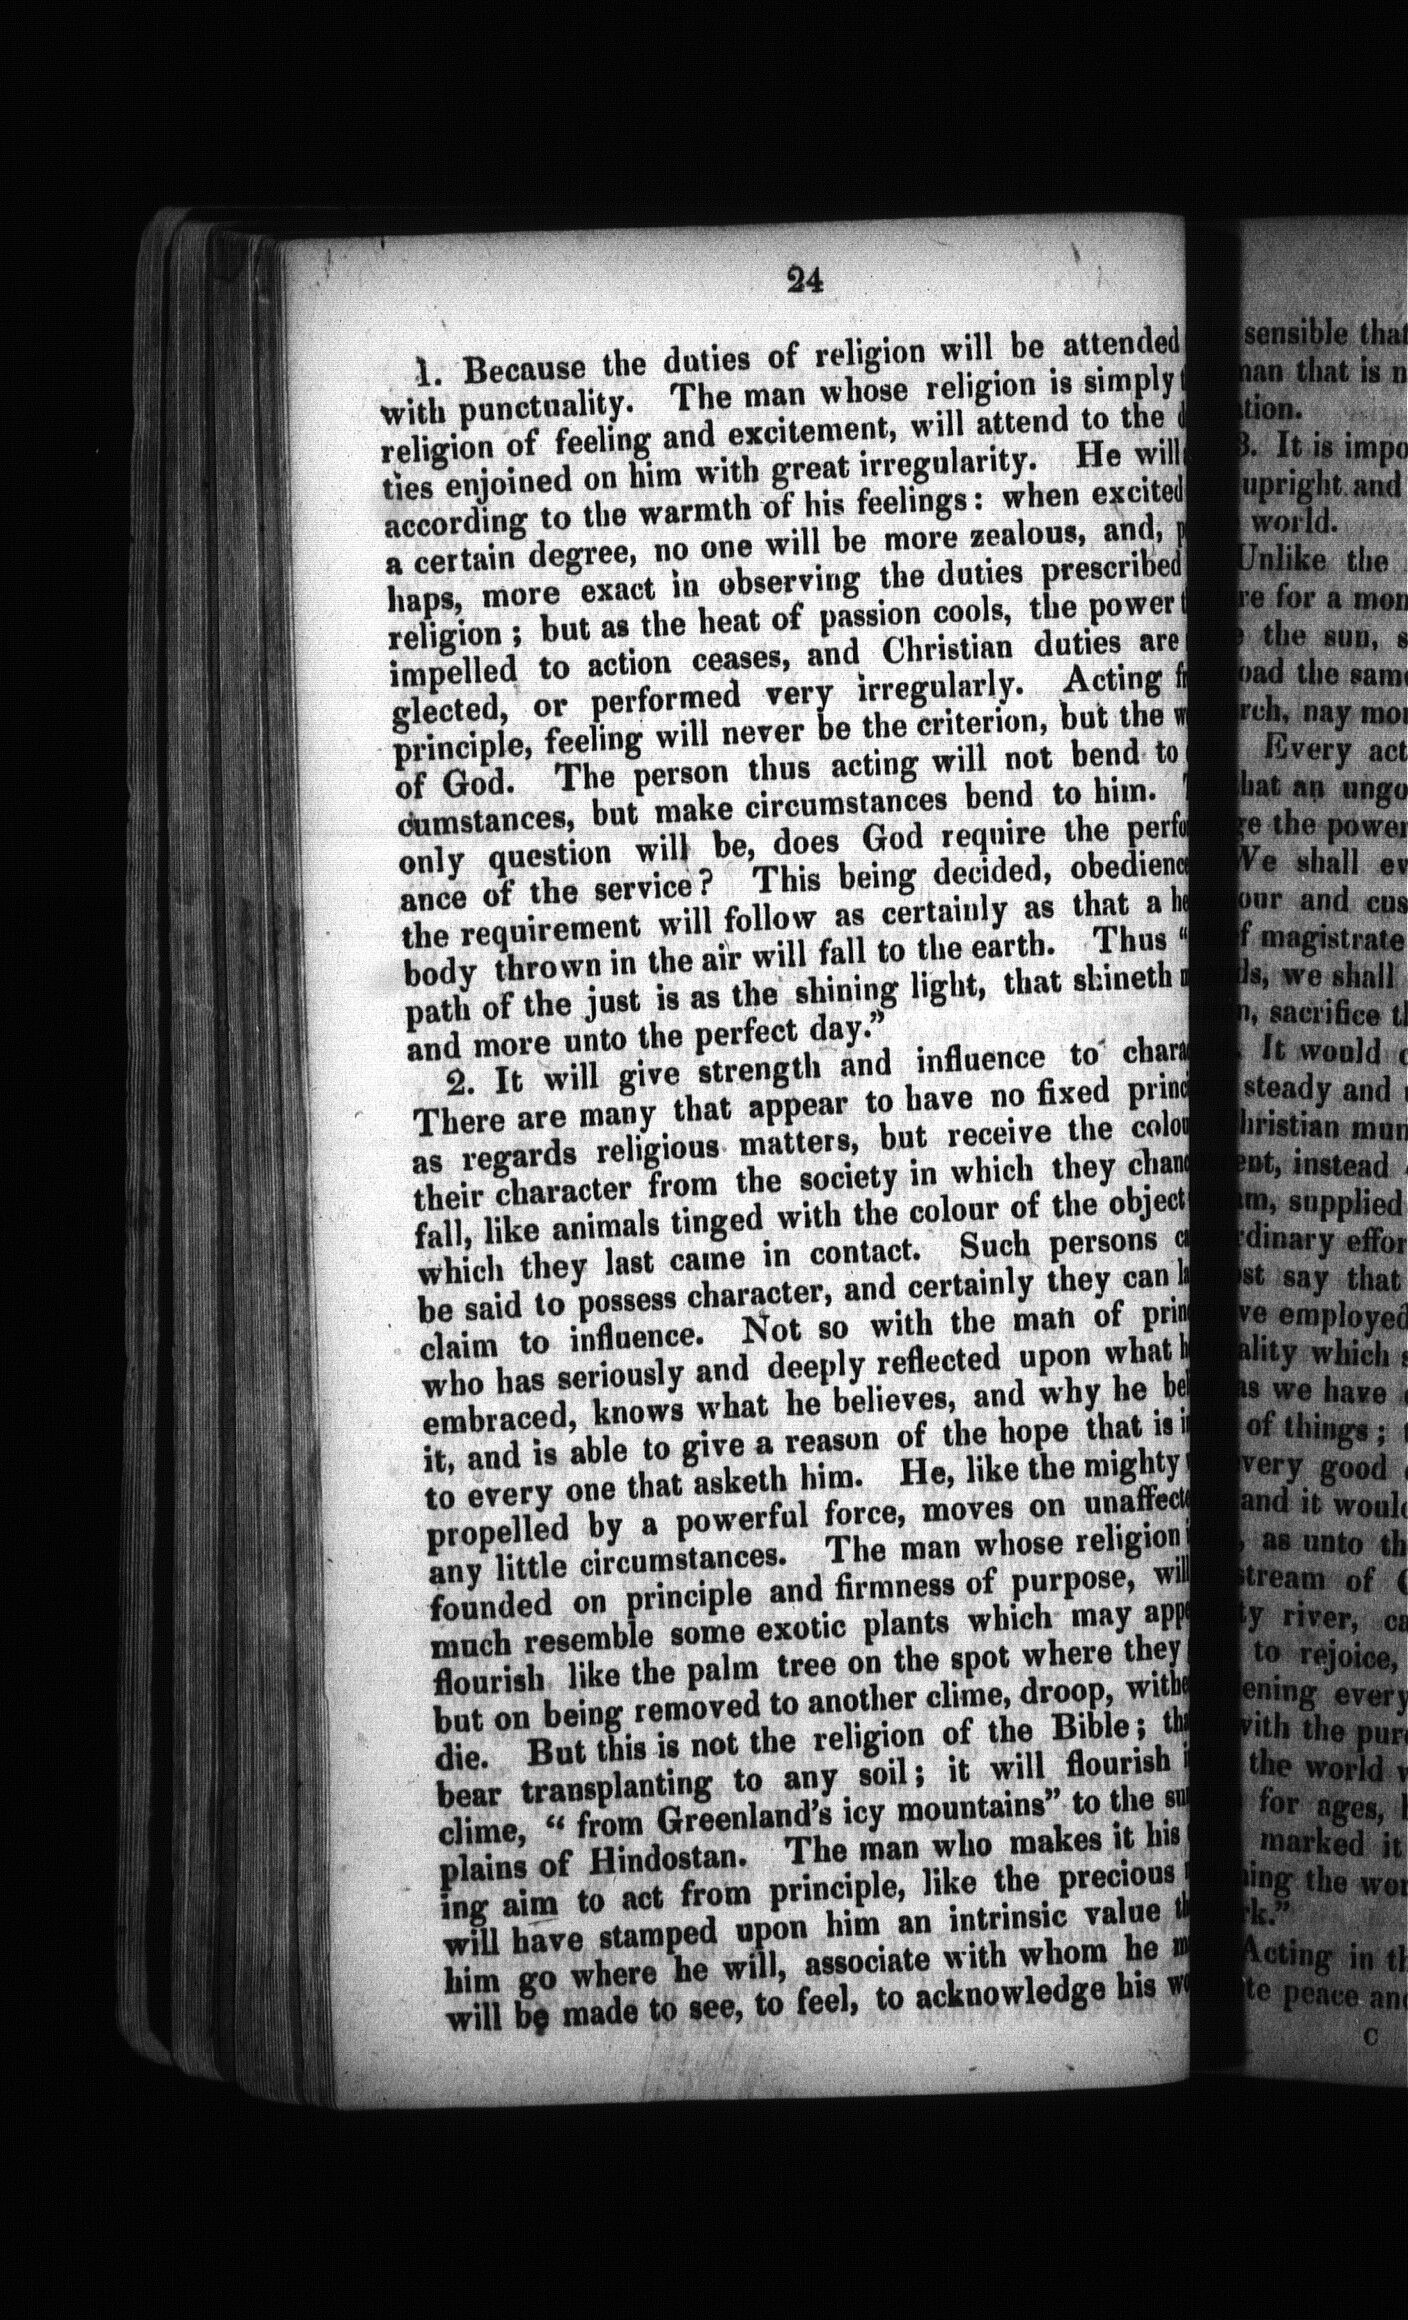 24
1. Because the duties of religion will be attended
with punctuality. The man whose religion is simply
religion of feeling and excitement, will attend to the
ties enjoined on him with great irregularity. He will
according to the warmth of his feelings: when excited
a certain degree, no one will be more zealous, and,
haps, more exact in observing the duties prescribed
religion; but as the heat of passion cools, the power
impelled to action ceases, and Christian duties are
glected, or performed very irregularly. Acting
principle, feeling will never be the criterion, but the
of God. The person thus acting will not bend to
cumstances, but make circumstances bend to him.
only question will be, does God require the perfo
ance of the service? This being decided, obedienc
the requirement will follow as certainly as that a he
body thrown in the air will fall to the earth. Thus "
path of the just is as the shining light, that shineth
and more unto the perfect day."
2. It will give strength and influence to chara
There are many that appear to have no fixed princi
as regards religious matters, but receive the colou
their character from the society in which they chanc
fall, like animals tinged with the colour of the object
which they last came in contact. Such persons ca
be said to possess character, and certainly they can la
claim to influence. Not so with the man of princ
who has seriously and deeply reflected upon what h
embraced, knows what he believes, and why he bel
it, and is able to give a reason of the hope that is i
to every one that asketh him. He, like the mighty
propelled by a powerful force, moves on unaffecte
any little circumstances. The man whose religion i
founded on principle and firmness of purpose, will
much resemble some exotic plants which may appe
flourish like the palm tree on the spot where they
but on being removed to another clime, droop, withe
die. But this is not the religion of the Bible; tha
bear transplanting to any soil; it will flourish i
clime, "from Greenland's icy mountains" to the su
plains of Hindostan. The man who makes it his
ing aim to act from principle, like the precious
will have stamped upon him an intrinsic value th
him go where he will, associate with whom he m
will be made to see, to feel, to acknowledge his wo
sensible that
man that is n
tion.
3. It is impo
upright and
world.
Unlike the
re for a mom
the sun, s
oad the same
rch, nay mor
Every act
hat an ungo
ge the power
We shall ev
our and cus
f magistrate
ds, we shall
n, sacrifice th
It would
steady and
hristian mun
ent, instead
am, supplied
rdinary effor
ost say that
ve employed
ality which s
as we have
of things;
very good
and it would
as unto th
stream of
ty river, ca
to rejoice,
ening every
with the pure
the world w
for ages,
marked it
ing the wor
rk."
Acting in th
te peace and
C